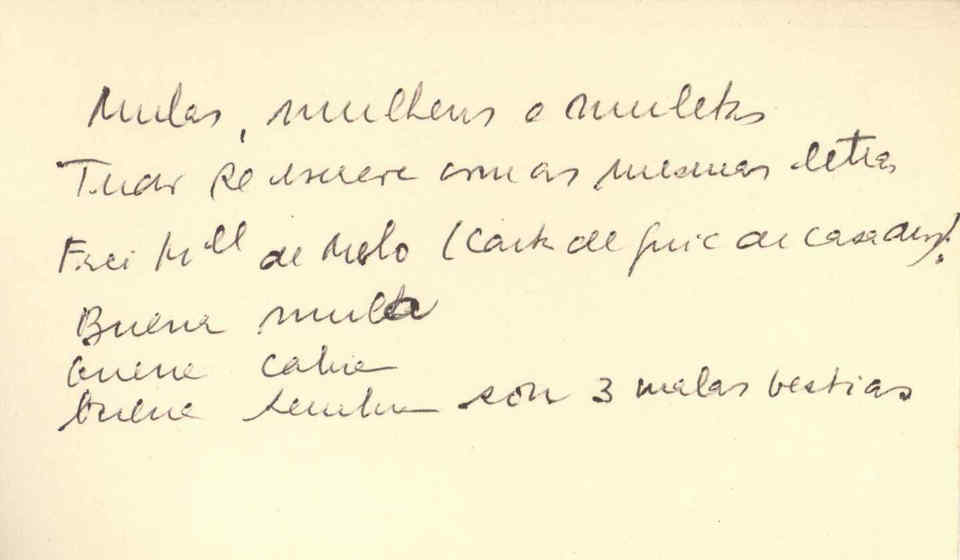 Mulas, mulheres e muletas
Tudo se escreve com as mesmas letras
Frei Mell de Melo (Carta de guia de casados)!
Buena mula
buena cabra
buena hembra son 3 malas bestias